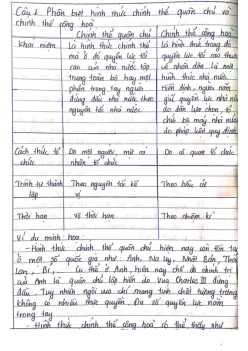 Câu 1. Phân biệt hình thức chính thể quân chủ và
chính thể cộng hoà
Chính thể quân chủ
Chính thể cộng hoà
Khái niệm
là hình thức chính thể
mà ở đó quyền lực tối
cao của nhà nước tập
trung toàn bộ hay một
phần trong tay người
đứng đầu nhà nước theo
nguyên tắc
là hình thức trong đó
quyền lực tối cao thuộc
về nhân dân. Là một
hình thức nhà nước
nắm
giữ quyền lực nhà nước
do dân lựa chọn, tổ
chức bộ máy nhà nước
do pháp luật quy định
Cách thức tổ
chức
Do một người, một cá
nhân tổ chức
Do cơ quan tổ chức
Trình tự thành
lập
Theo nguyên tắc kế
vị
Theo bầu cử
Thời hạn
Vô thời hạn
Theo nhiệm kì
Ví dụ minh hoạ:
- Hình thức chính thể quân chủ hiện nay còn tồn tại
ở một số quốc gia như: Anh, Na Uy, Nhật Bản, Thái
Lan, Bỉ,... Cụ thể ở Anh, hiện nay chế độ chính trị
của Anh là quân chủ lập hiến do Vua Charles III đứng
đầu. Tuy nhiên ngôi vua chỉ mang tính chất tượng trưng
không có nhiều thực quyền. Đa số quyền lực nằm
trong tay
- Hình thức chính thể cộng hoà có thể thấy như